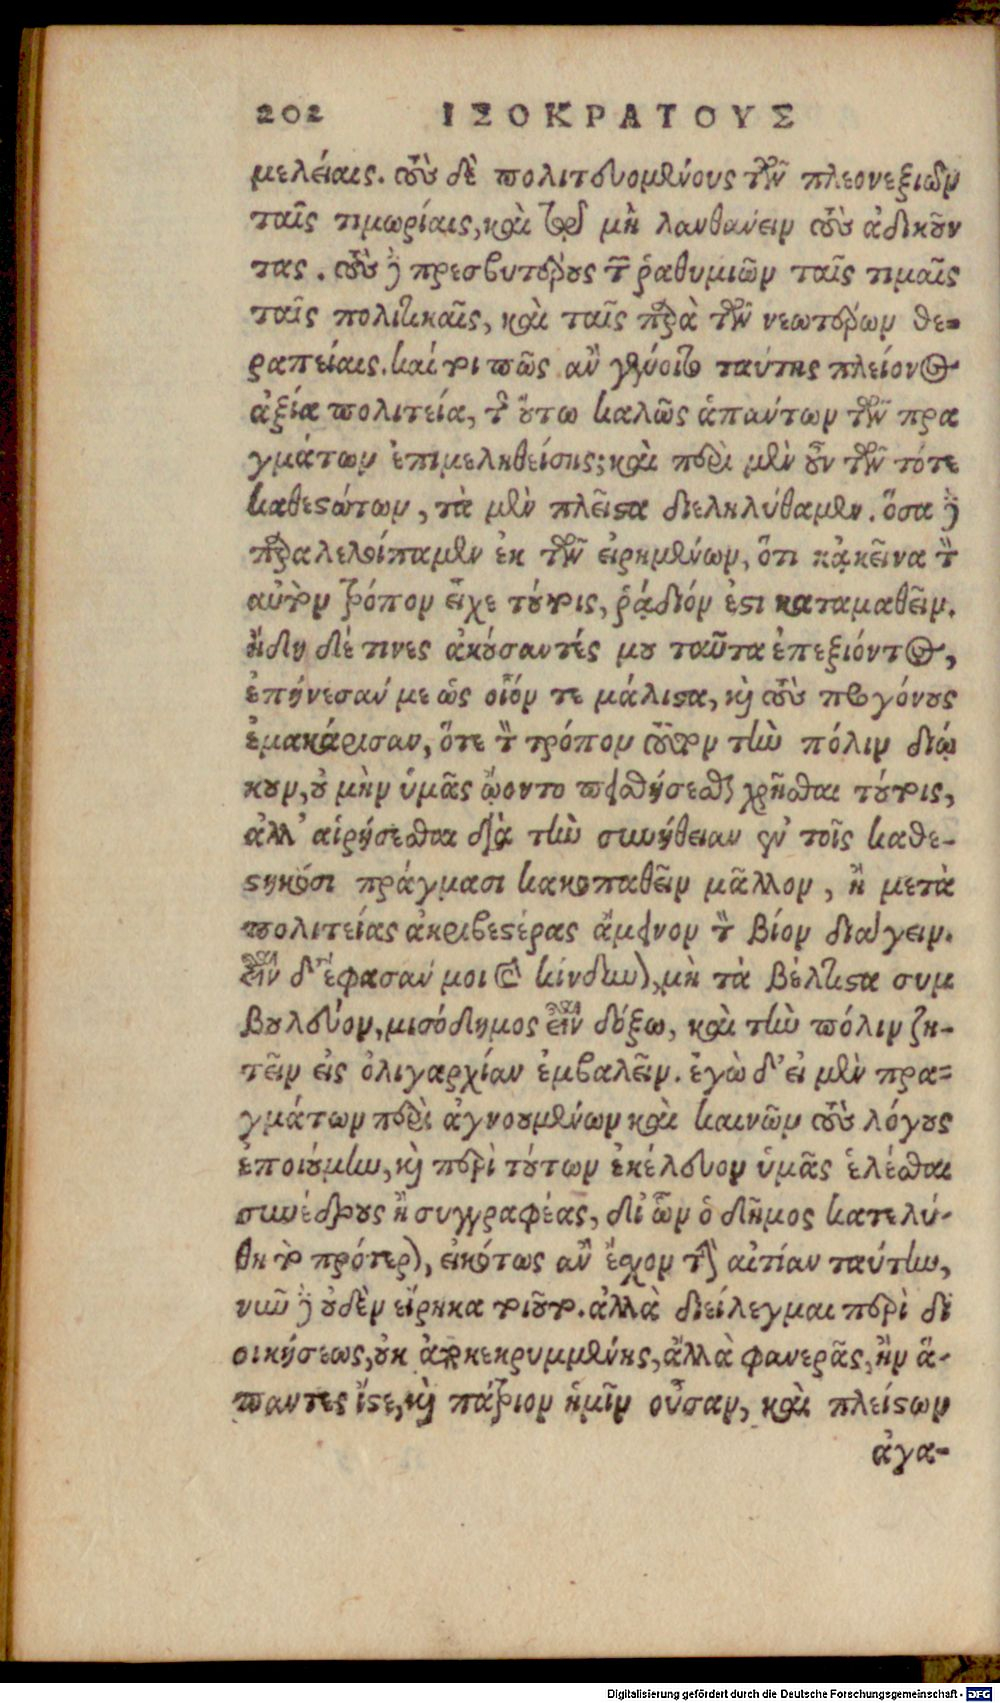 202 ΙΣΟΚΡΑΤΟΥΣ
μελείαις. τοὺς δὲ πολιτευομένους τῶν πλεονεξιῶν
ταῖς τιμωρίαις, καὶ τῷ μὴ λανθάνειν τοὺς ἀδικοῦν
τας. τοὺς δὲ πρεσβυτέρους τῶν ῥαθυμιῶν ταῖς τιμαῖς
ταῖς πολιτικαῖς, καὶ ταῖς παρὰ τῶν νεωτέρων θε-
ραπείαις. καί τοι πῶς ἂν γένοιτο ταύτης πλείονος
ἀξία πολιτεία, τῆς οὕτω καλῶς ἁπάντων τῶν πρα
γμάτων ἐπιμεληθείσης; καὶ περὶ μὲν οὖν τῶν τότε
καθεστώτων, τὰ μὲν πλεῖστα διεληλύθαμεν. ὅσα δὲ
παραλελοίπαμεν ἐκ τῶν εἰρημένων, ὅτι κᾀκεῖνα τὸν
αὐτὸν τρόπον εἶχε τούτοις, ῥᾴδιόν ἐστι καταμαθεῖν.
ἤδη δέ τινες ἀκούσαντές μου ταῦτα ἐπεξιόντος,
ἐπῄνεσάν με ὡς οἷόν τε μάλιστα, καὶ τοὺς προγόνους
ἐμακάρισαν, ὅτε τὸν τρόπον τοῦτον τὴν πόλιν διῴ
κουν, οὐ μὴν ὑμᾶς ᾤοντο πεισθήσεσθαι χρῆσθαι τούτοις,
ἀλλ' αἱρήσεσθαι διὰ τὴν συνήθειαν ἐν τοῖς καθε-
στηκόσι πράγμασι κακοπαθεῖν μᾶλλον, ἢ μετὰ
πολιτείας ἀκριβεστέρας ἄμεινον τὸν βίον διάγειν.
εἶναι δ' ἔφασάν μοι καὶ κίνδυνον, μὴ τὰ βέλτιστα συμ
βουλεύων, μισόδημος εἶναι δόξω, καὶ τὴν πόλιν ζη-
τεῖν εἰς ὀλιγαρχίαν ἐμβαλεῖν. ἐγὼ δ' εἰ μὲν πρα-
γμάτων περὶ ἀγνουμένων καὶ καινῶν τοὺς λόγους
ἐποιούμην, καὶ περὶ τούτων ἐκέλευον ὑμᾶς ἑλέσθαι
συνέδρους ἢ συγγραφέας, δι' ὧν ὁ δῆμος κατελύ-
θη τὸ πρότερον, εἰκότως ἂν ἔχον τὴν αἰτίαν ταύτην,
νῦν δὲ οὐδὲν εἴρηκα τοιοῦτο. ἀλλὰ διείλεγμαι περὶ δι
οικήσεως, οὐκ ἀποκεκρυμμένης, ἀλλὰ φανερᾶς, ἣν ἅ-
παντες ἴστε, καὶ πάτριον ἡμῖν οὖσαν, καὶ πλείστων
ἀγα-
Digitalisierung gefördert durch die Deutsche Forschungsgemeinschaft - DFG